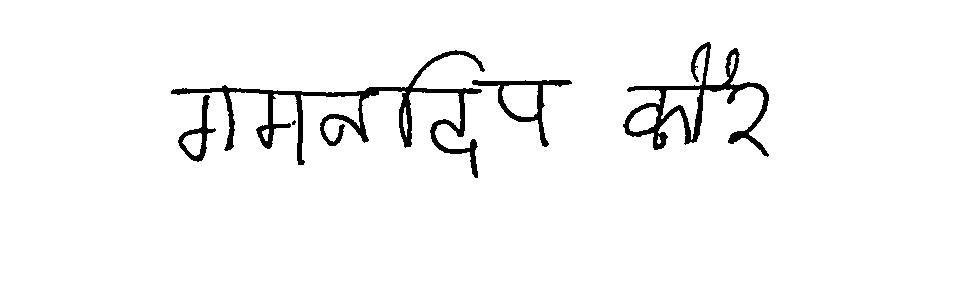 गमनदिप कौर